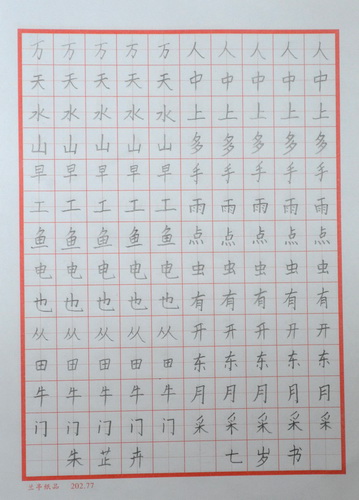 万万万万万人人人人人
天天天天天中中中中中
水水水水水上上上上上
山山山山山多多多多多
早早早早早手手手手手
工工工工工雨雨雨雨雨
鱼鱼鱼鱼鱼点点点点点
电电电电电虫虫虫虫虫
也也也也也有有有有有
从从从从从开开开开开
田田田田田东东东东东
牛牛牛牛牛月月月月月
门门门门门采采采采采
朱芷卉 七岁书
兰亭纸品 202.77